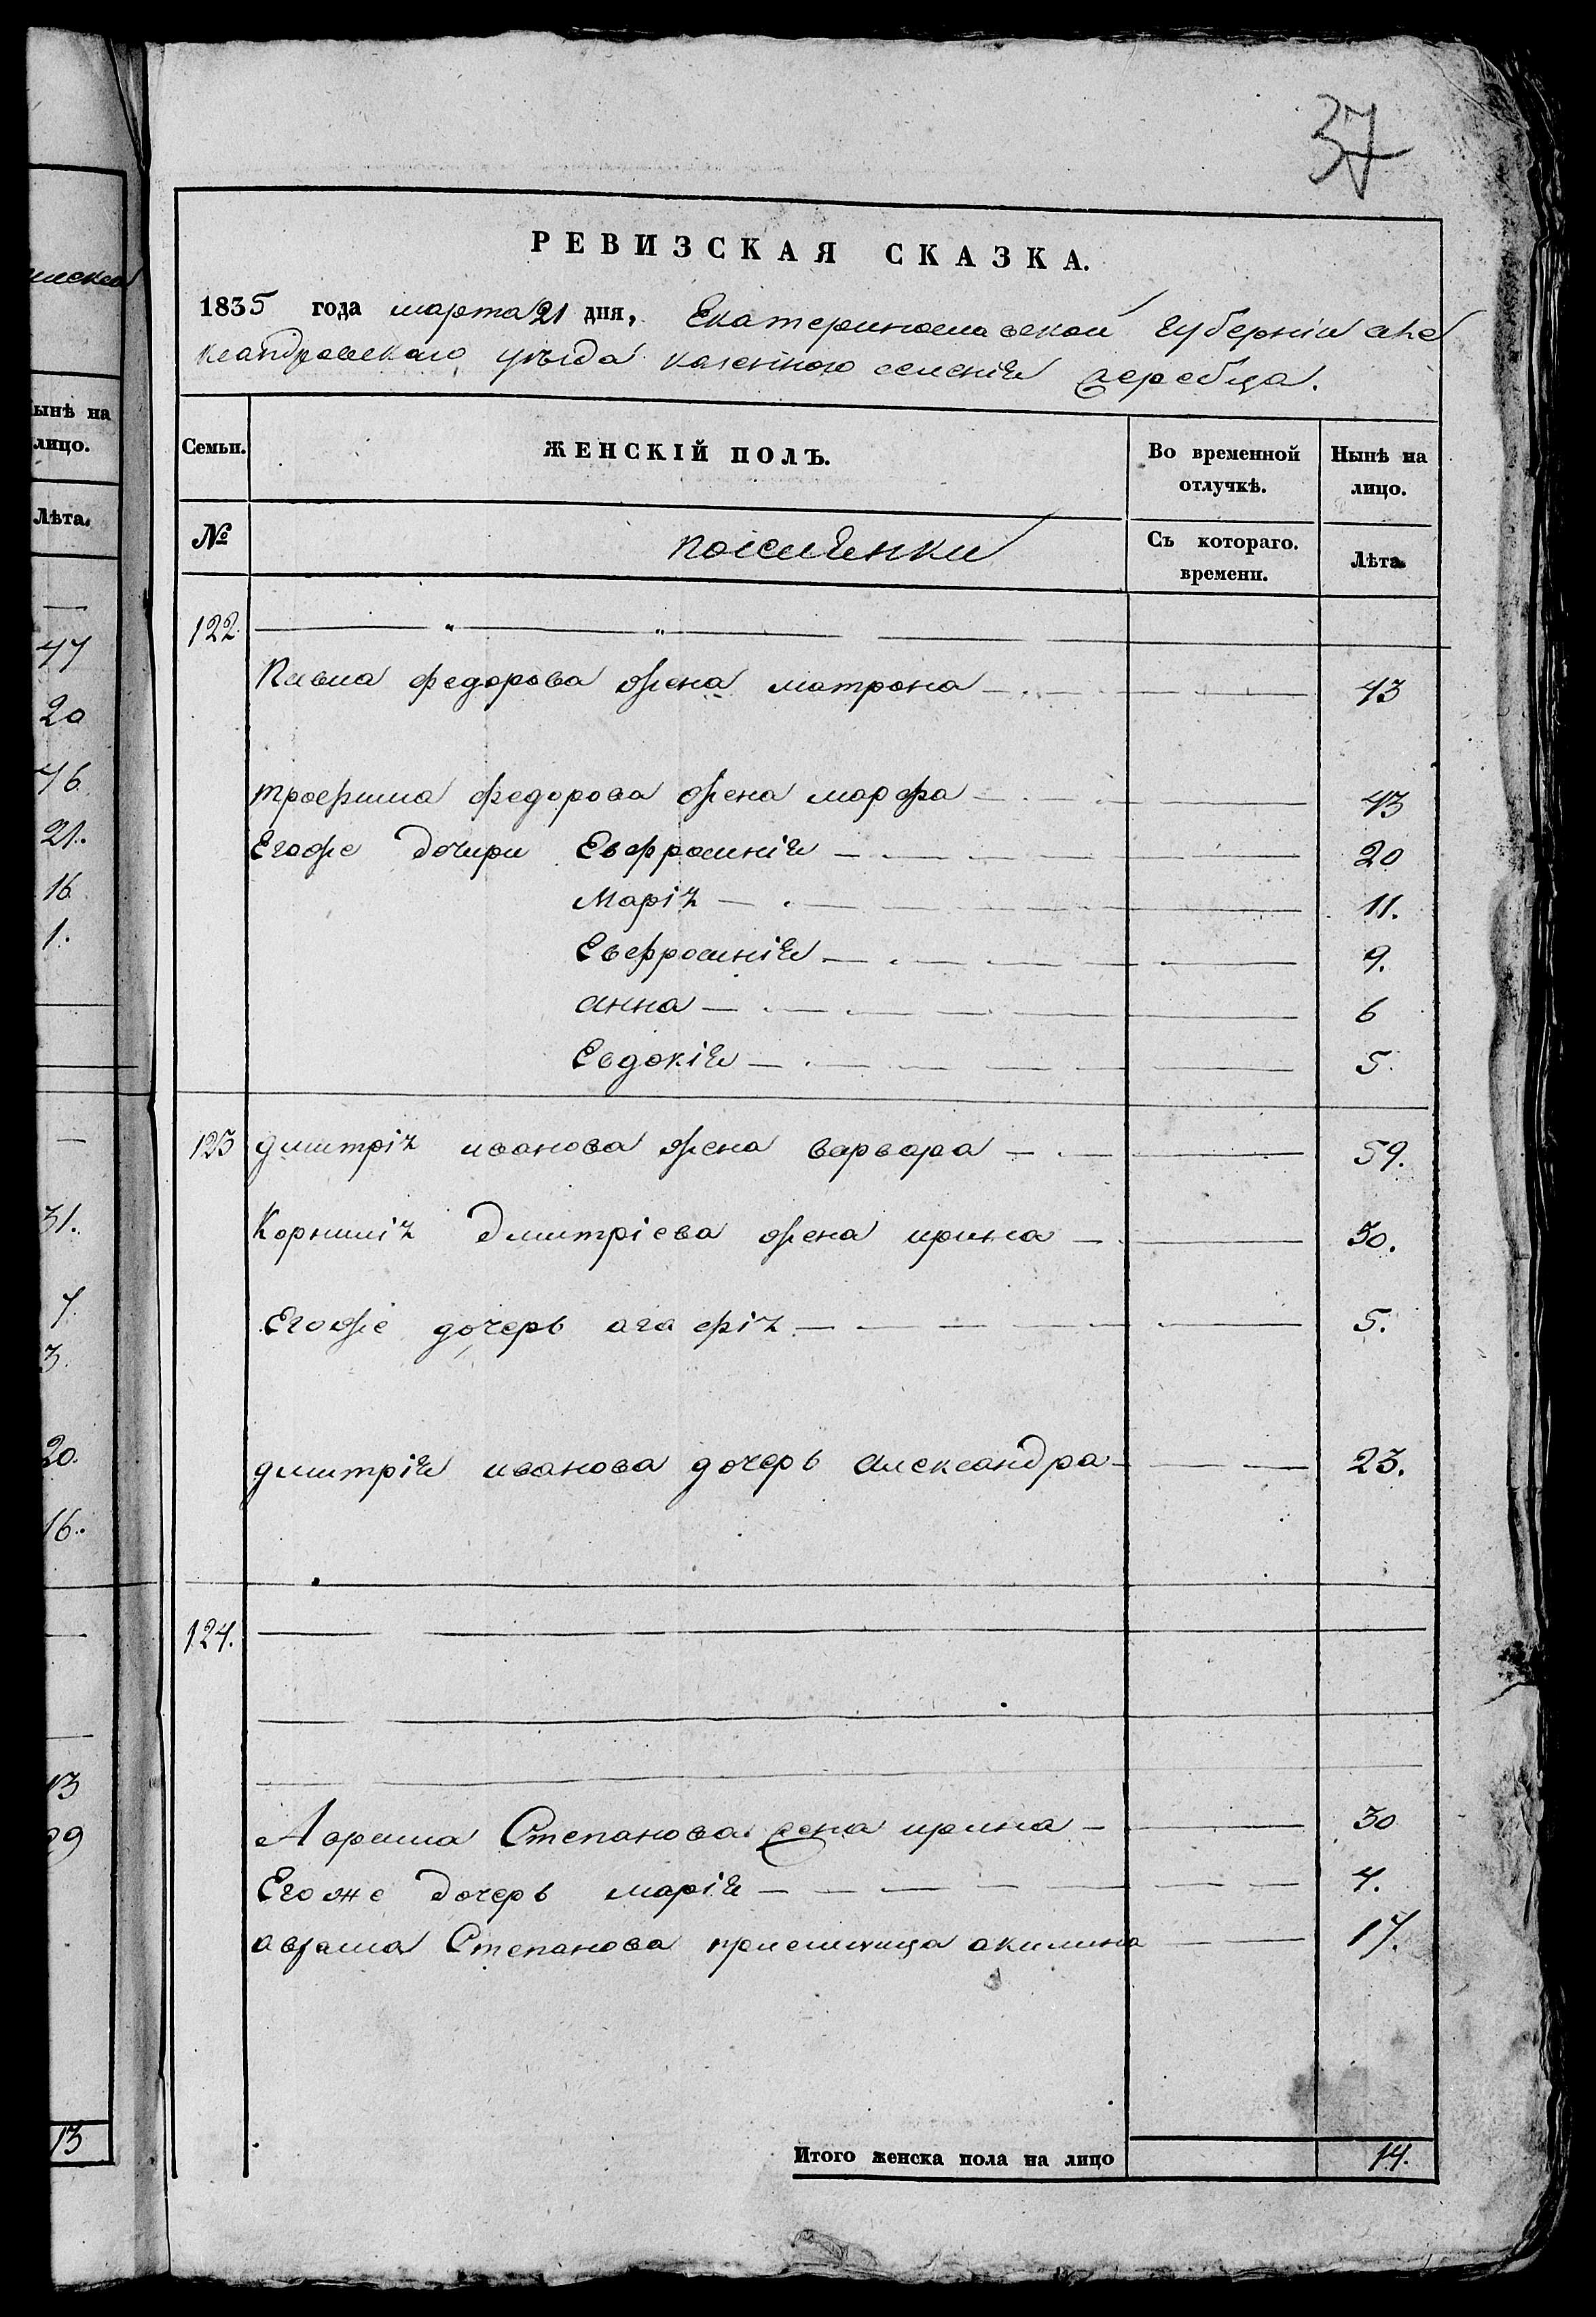 37
РЕВИЗСКАЯ СКАЗКА.
1835 года марта 21 дня, Екатеринославской губернiи Але
ксандровскаго уѣзда казенного селенiя Жеребца.
Семьи. ЖЕНСКIЙ ПОЛЪ. Во временной отлучкѣ. Нынѣ на лицо.
№ поселянки Съ котораго. времени. Лѣта
122
Павла федорова жена матрона 43
трофима федорова жена марфа 43
Егоже дочери Евфросинiя 20
Марiя 11.
Евфросинiя 9.
анна 6
Евдокiя 5.
123 дмитрiя иванова жена варвара 59.
Корнилiя дмитрiева жена ирина 30.
Егоже дочерь агафiя 5.
дмитрiя иванова дочерь александра 23.
124.
Аврама Степанова жена ирина 30
Егоже дочерь марiя 4.
аврама Степанова приемища акилина 17.
Итого женска пола на лицо 14.
ынѣ на
лицо.
Лѣта.
47
20
46
21.
16
1.
31.
7.
3.
20.
16.
13
99
13